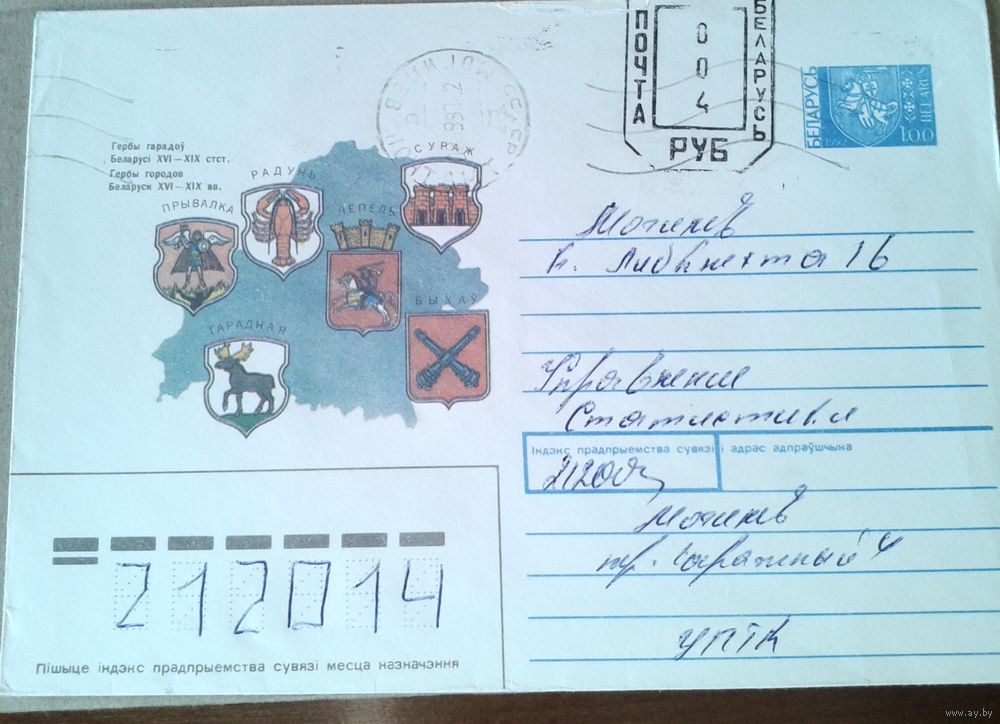 Гербы гарадоў
Беларусі XVI—XIX стст.
Гербы городов
Беларуси XVI—XIX вв.
ПРЫВАЛКА
РАДУНЬ
ЛЕПЕЛЬ
СУРАЖ
ГАРАДНАЯ
БЫХАЎ
ПОЧТА
004
БЕЛАРУСЬ
РУБ
БЕЛАРУСЬ
1992
1.00
BELARUS
Могилев
К. Либкнехта 16
Управление
Статистики
Індэкс прадпрыемства сувязі і адрас адпраўшчыка
Могилев
пр. Гаражный 4
УПТК
212014
Пішыце індэкс прадпрыемства сувязі месца назначэння
www.ay.by